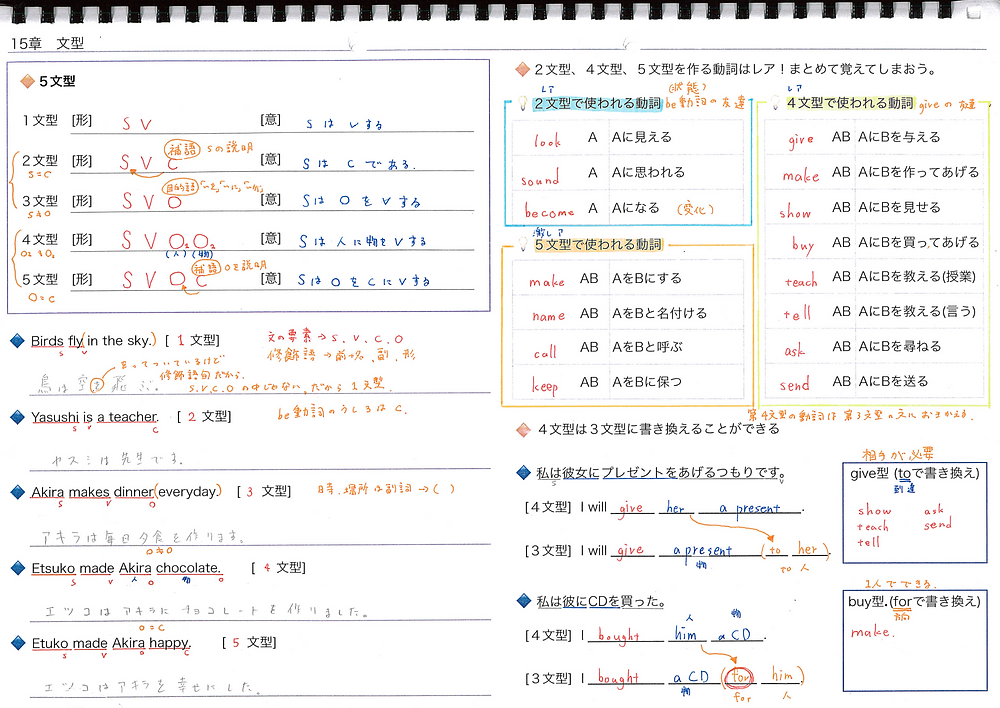 15章 文型
5文型
1文型 [形] S V [意] S は V する
補語 Sの説明
2文型 [形] S V C [意] S は C である.
S=C
目的語 「〜を」「〜に」「〜が」
3文型 [形] S V O [意] Sは O を V する
S≠O
4文型 [形] S V O₁O₂ [意] S は 人に物を V する
O₂≠O₁ (人)(物)
補語 Oを説明
5文型 [形] S V O C [意] Sは O を C に V する
O=C
Birds fly (in the sky.) [ 1 文型]
S V
文の要素→S. V. C. O
修飾語→前+名、副、形
をってついているけど
修飾語句だから.
S.V.C.Oの中じゃない.だから 1文型.
鳥は空を飛ぶ。
Yasushi is a teacher. [ 2 文型]
S V C
be動詞のうしろは C.
ヤスシは先生です.
Akira makes dinner (everyday.) [ 3 文型]
S V O
日時、場所は副詞→( )
アキラは毎日夕食を作ります。
O≠O
Etsuko made Akira chocolate. [ 4 文型]
S V 人 O 物 O
エツコはアキラにチョコレートを作りました。
O=C
Etuko made Akira happy. [ 5 文型]
S V O C
エツコはアキラを幸せにした。
2文型、4文型、5文型を作る動詞はレア!まとめて覚えてしまおう。
レア (状態)
2文型で使われる動詞 be動詞の友達
look A Aに見える
sound A Aに思われる
become A Aになる (変化)
激レア
5文型で使われる動詞
make AB AをBにする
name AB AをBと名付ける
call AB AをBと呼ぶ
keep AB AをBに保つ
レア
4文型で使われる動詞 giveの友達
give AB AにBを与える
make AB AにBを作ってあげる
show AB AにBを見せる
buy AB AにBを買ってあげる
teach AB AにBを教える(授業)
tell AB AにBを教える(言う)
ask AB AにBを尋ねる
send AB AにBを送る
第4文型の動詞は第3文型の文になおせる.
4文型は3文型に書き換えることができる
私は彼女にプレゼントをあげるつもりです。
S V
[4文型] I will give her a present.
[3文型] I will give a present (to her).
物 to 人
相手が必要
give型 (toで書き換え)
到達
show ask
teach send
tell
私は彼にCDを買った。
人 物
[4文型] I bought him a CD.
[3文型] I bought a CD (for him).
物 for 人
1人でできる.
buy型.(forで書き換え)
方向
make.